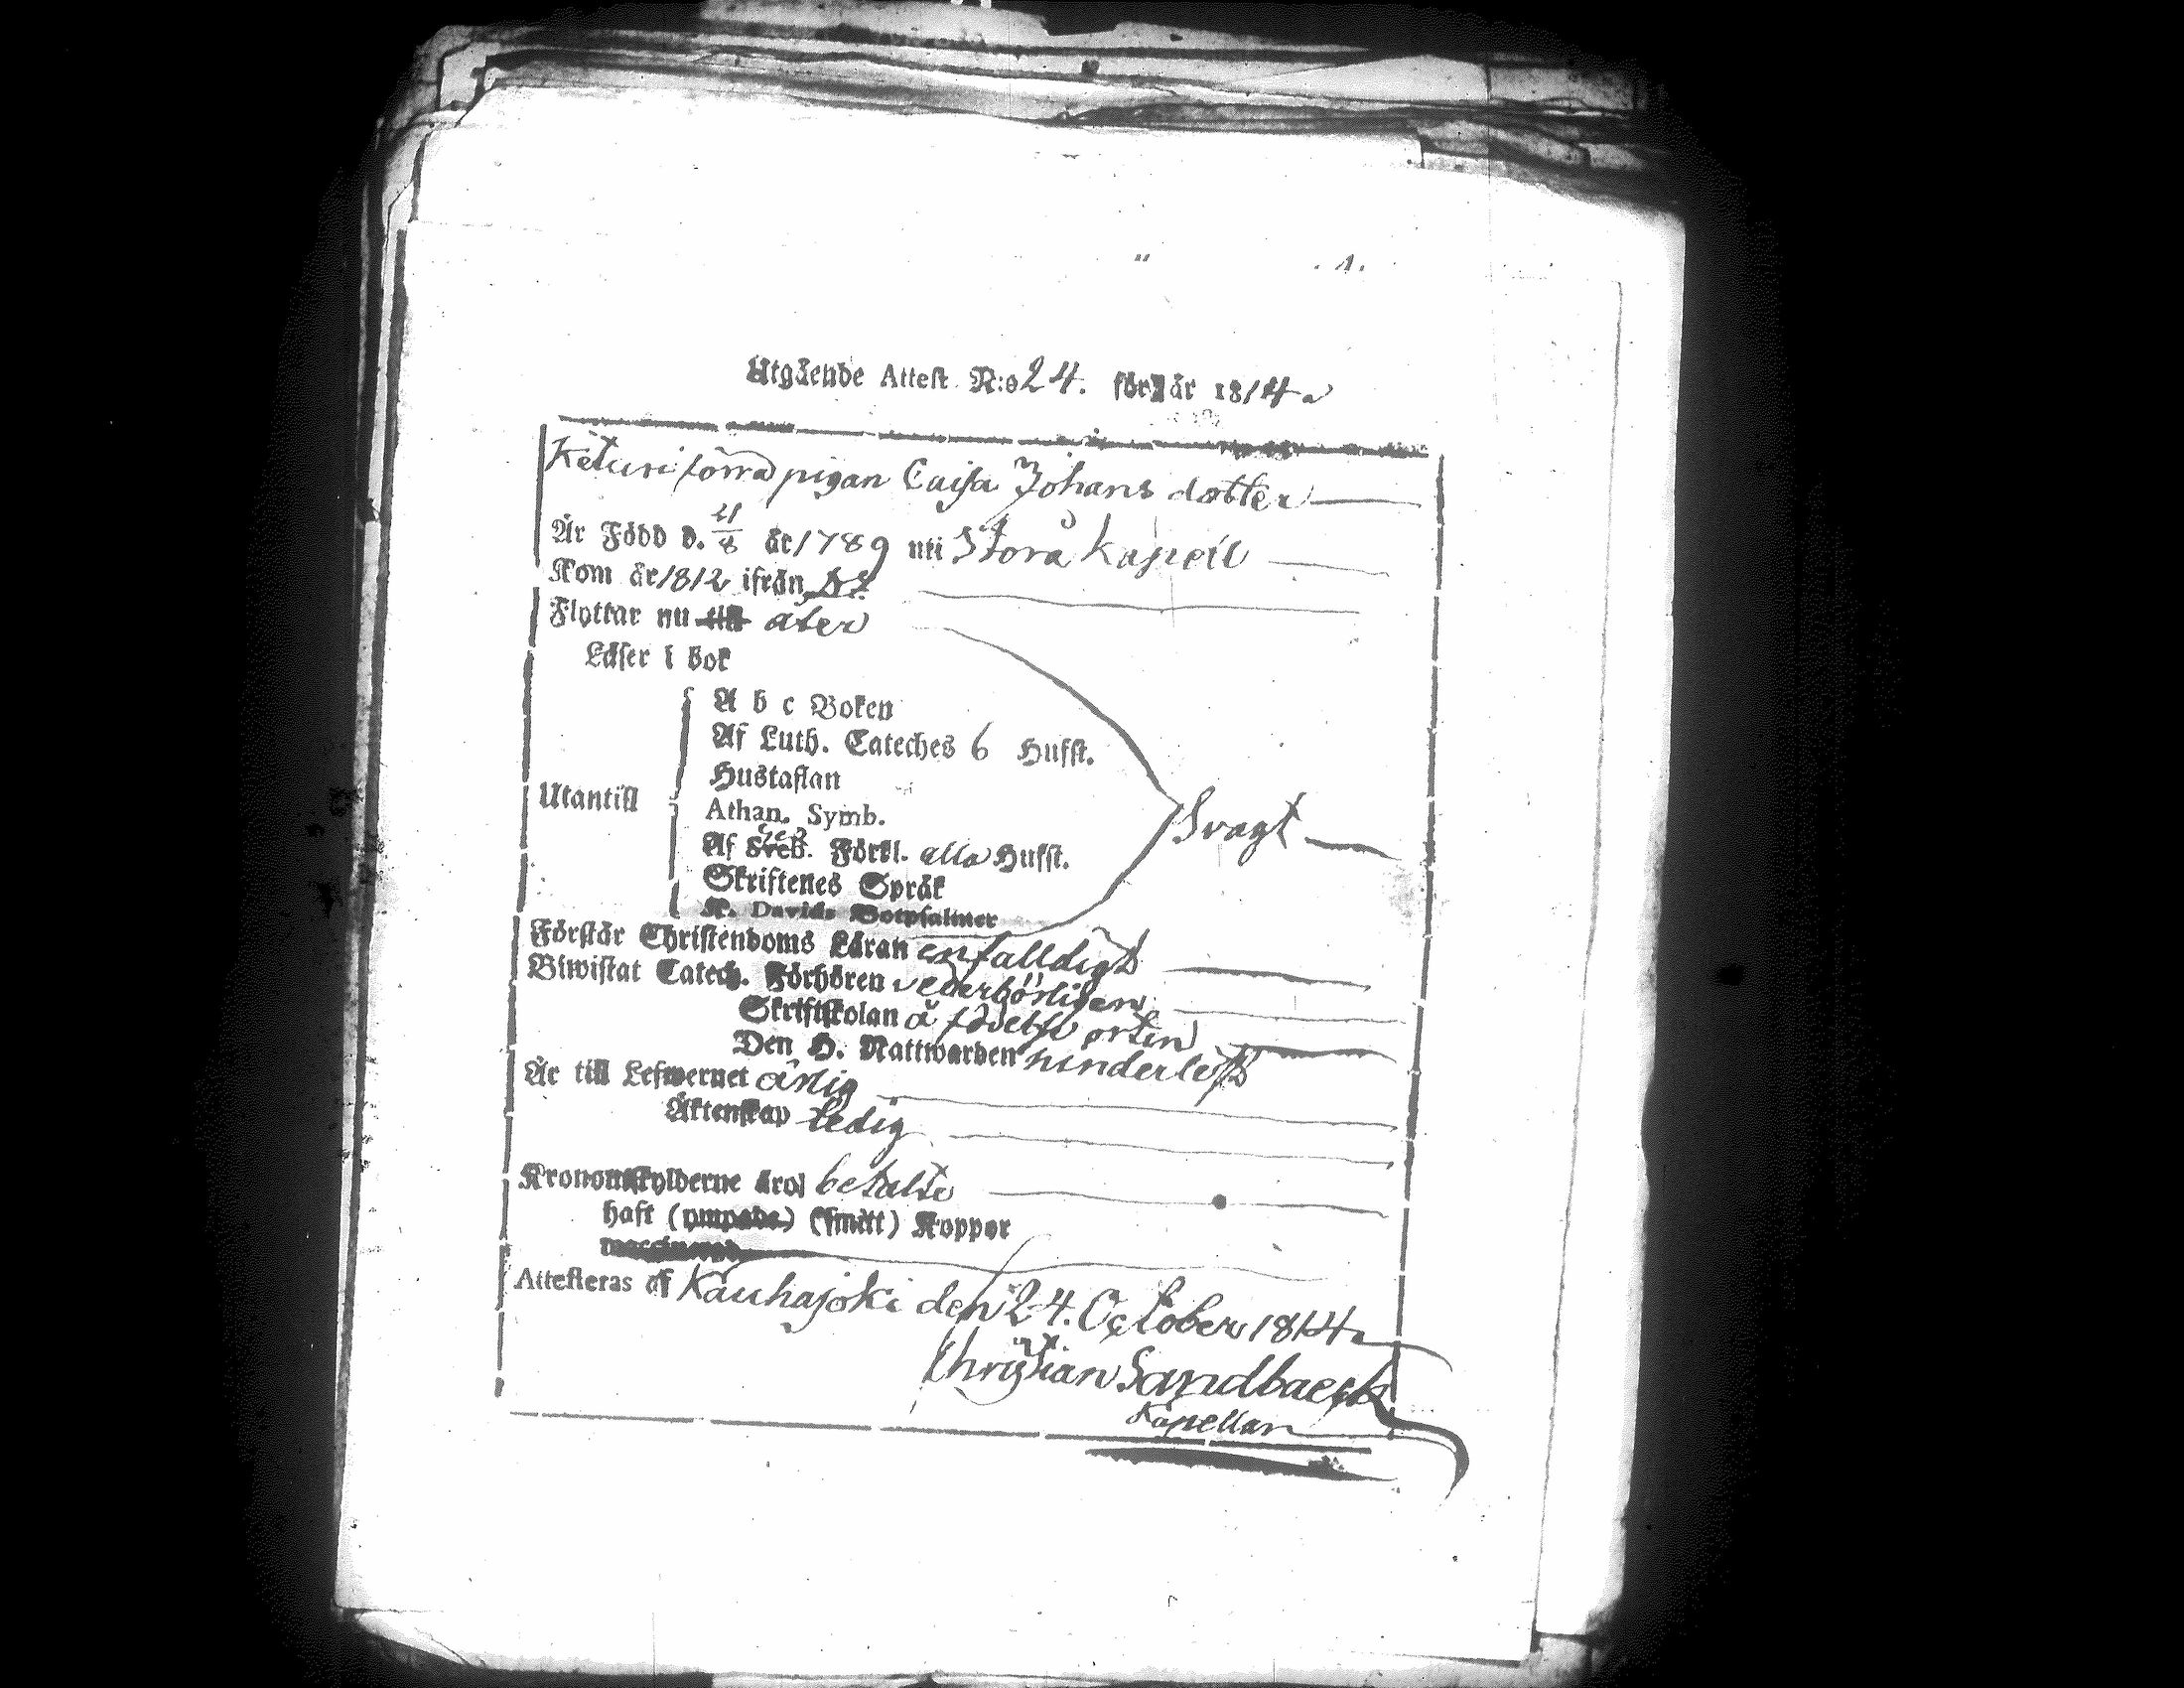 Utgående Attest N:o 24. för år 1814
Keturi förra pigan Caisa Johans dotter
Är Född d. 21/8 år 1789 uti Stora kapell
Kom år 1812 ifrån
Flyttar nu till åter
Läser i bok
A b c Boken
Af Luth. Cateches 6 Hufst.
Hustaflan
Utantill
Athan. Symb.
Svagt
Af Sveb. Förkl. alla Hufst.
Skriftenes Språk
K. Davids Botpsalmer
Förstår Christendoms Läran enfalldigt
Biwistat Catech. Förhören vederbörligen
Skriftskolan å födelse orten
Den H. Nattwarden hinderlöst
Är till Lefwernet ärlig
Äktenskap ledig
Kronoutskylderne äro betalte
haft (ympade) (smitt) Koppor
vaccinerad
Attesteras af Kauhajoki den 24. October 1814
Christian Sandbaeck
Kapellan